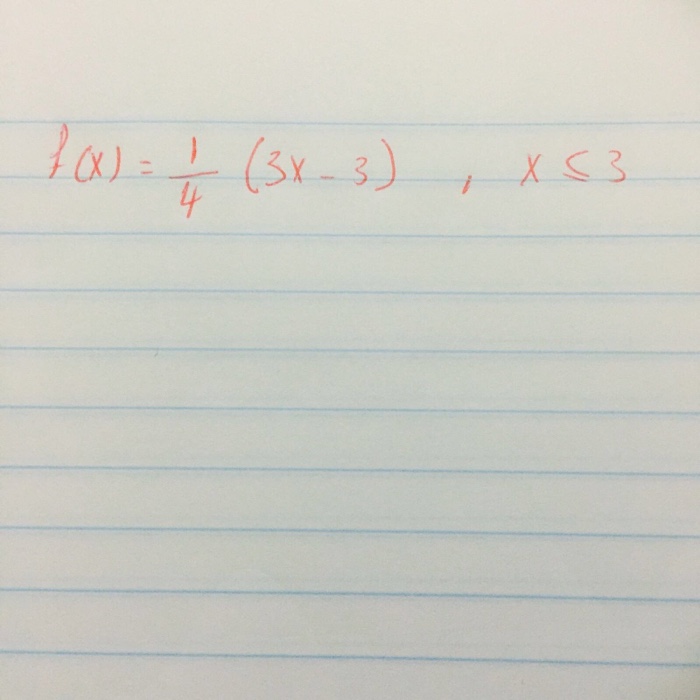 f(x) = 1/4 (3x - 3) , x ≤ 3